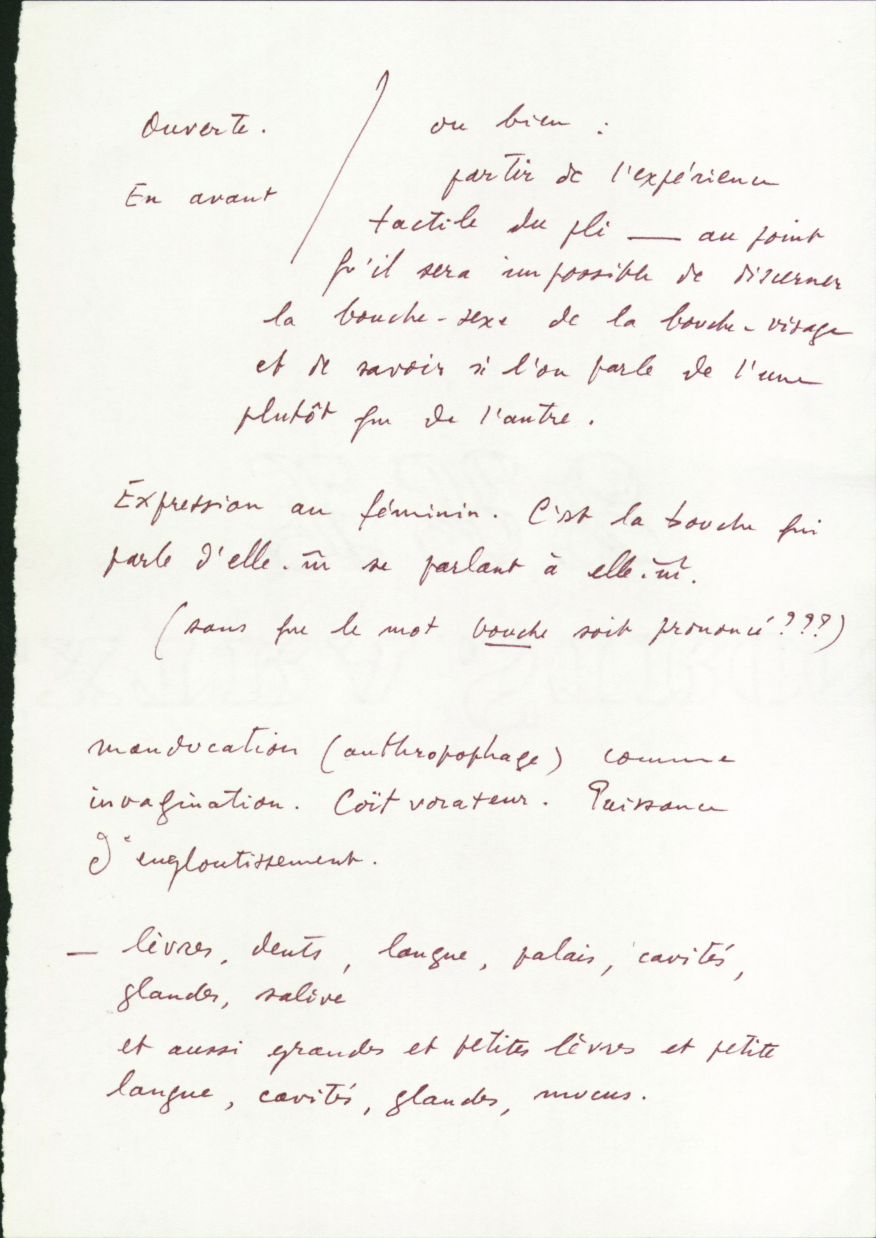 Ouverte.
En avant
ou bien :
partir de l'expérience
tactile du pli — au point
qu'il sera impossible de discerner
la bouche-sexe de la bouche-visage
et de savoir si l'on parle de l'une
plutôt que de l'autre.
Expression au féminin. C'est la bouche qui
parle d'elle-m̄ se parlant à elle-m̄.
(sans que le mot bouche soit prononcé ???)
manducation (anthropophage) comme
invagination. Coït vorateur. Puissance
d'engloutissement.
— lèvres, dents, langue, palais, cavités,
glandes, salive
et aussi grandes et petites lèvres et petite
langue, cavités, glandes, mucus.